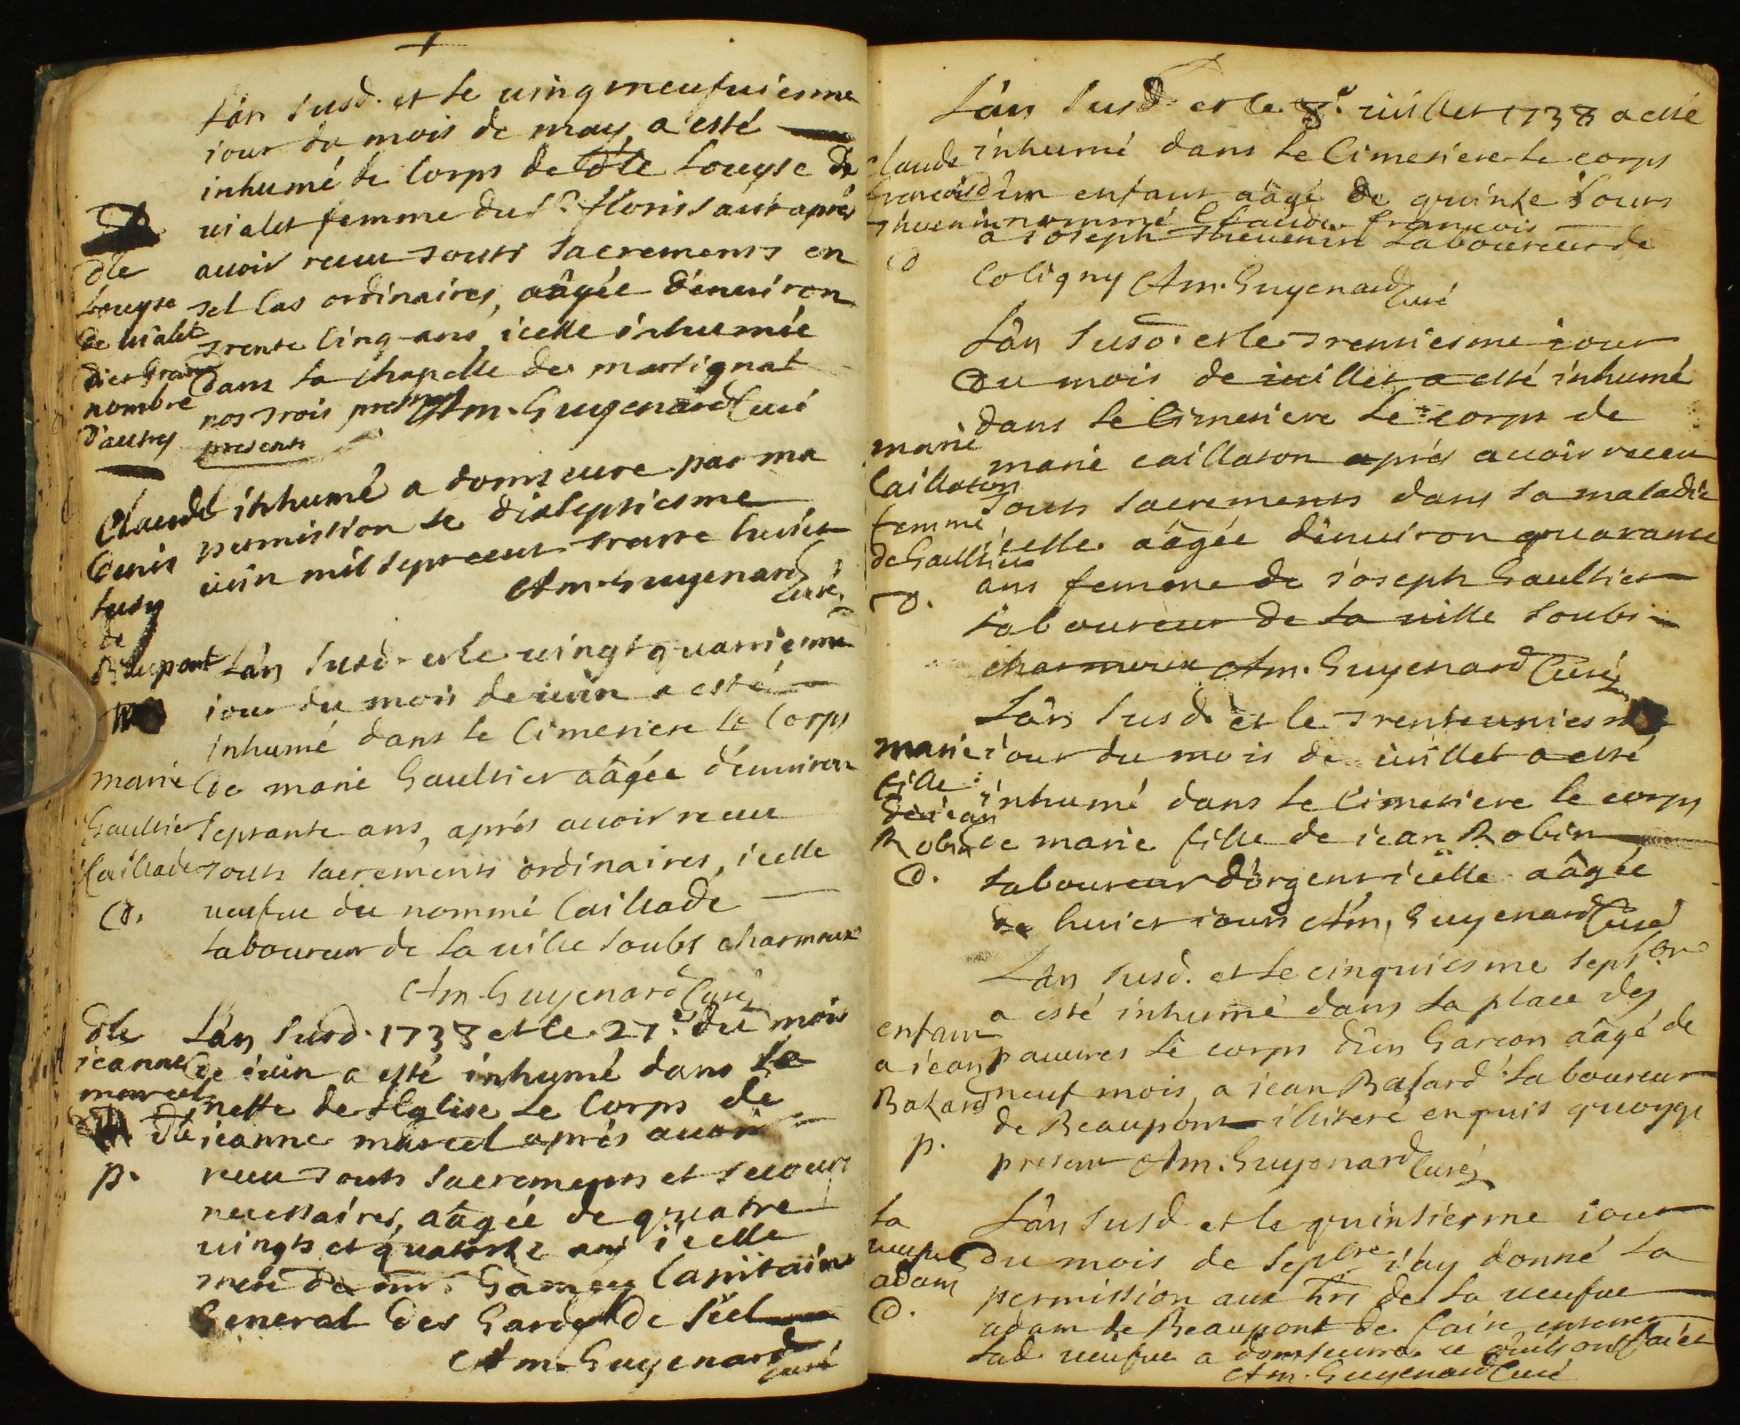 L'an susd. et le vingneufuiesme
iour du mois de may a esté
inhumé le Corps de dlle Louyse de
uialet femme du Sr. florissant apres
auoir receu touts sacrements en
tel cas ordinaires, aâgée d'enuiron
trente Cinq ans, icelle inhumée
dans la Chapelle de martignat
nos trois presents Am. Guyenard Curé
presents
dlle
Louyse
de uialet
nombre
d'autres
inhumé a domseure par ma
permission le dixseptiesme
iuin mil sept cent trente huict
Am. Guyenard
Curé
Claude
Denis
de
Beaupont
L'an susd. et le uingt quatriesme
iour du mois de iuin a esté
inhumé dans le Cimetiere le Corps
de marie Gaultier aâgée d'enuiron
septante ans, aprés auoir receu
touts sacrements ordinaires, icelle
ueufue du nommé Caillade
laboureur de la uille soubs charmoux
Am. Guyenard Curé
marie
Gaultier
Caillade
D.
L'an susd. 1738 et le 27e. du mois
de iuin a esté inhumé dans la
nette de l'Eglise le Corps de
ieanne marcel aprés auoir
receu touts sacrements et secours
necessaires, aâgée de quatre
uingts et quatorze ans icelle
mere de mr. Gamey Capitaine
General des Gardes de sel
Am. Guyenard
curé
dlle
ieanne
marcel
p.
L'an susd. et le 8e. iuillet 1738 a esté
inhumé dans le Cimetiere le corps
d'un enfant aâgé de quinze iours
nommé Claude françois
a ioseph Theuenin laboureur de
Coligny Am. Guyenard
Curé
Claude
francois
Theuenin
D
L'an susd. et le trentiesme iour
du mois de iuillet a esté inhumé
dans le Cimetiere le corps de
marie caillaton aprés auoir receu
touts sacrements dans sa maladie
icelle aâgée d'enuiron quarante
ans femme de ioseph Gaultier
laboureur de la uille soubs
charmoux Am. Guyenard Curé
marie
Caillaton
femme
de Gaultier
D.
L'an susd. et le trenteuniesme
iour du mois de iuillet a esté
inhumé dans le Cimetiere le corps
de marie fille de iean Robin
laboureur d'orgent icelle aâgée
de huict iours Am. Guyenard Curé
marie
fille
de iean
Robin
D.
L'an susd. et le cinquiesme septbre
a esté inhumé dans la place des
pauures le corps d'un Garcon aâgé de
neuf mois, a iean Bazard laboureur
de Beaupont illiteré enquis quoyqe
present Am. Guyenard Curé
enfant
a iean
Bazard
p.
L'an susd. et le quinziesme iour
du mois de Septbre i'ay donné la
permission aux hrs de la ueufue
adam de Beaupont de faire enterrer
lad. ueufue a domseure ce qu'ils ont faict
Am. Guyenard Curé
la
ueufue
adam
D.